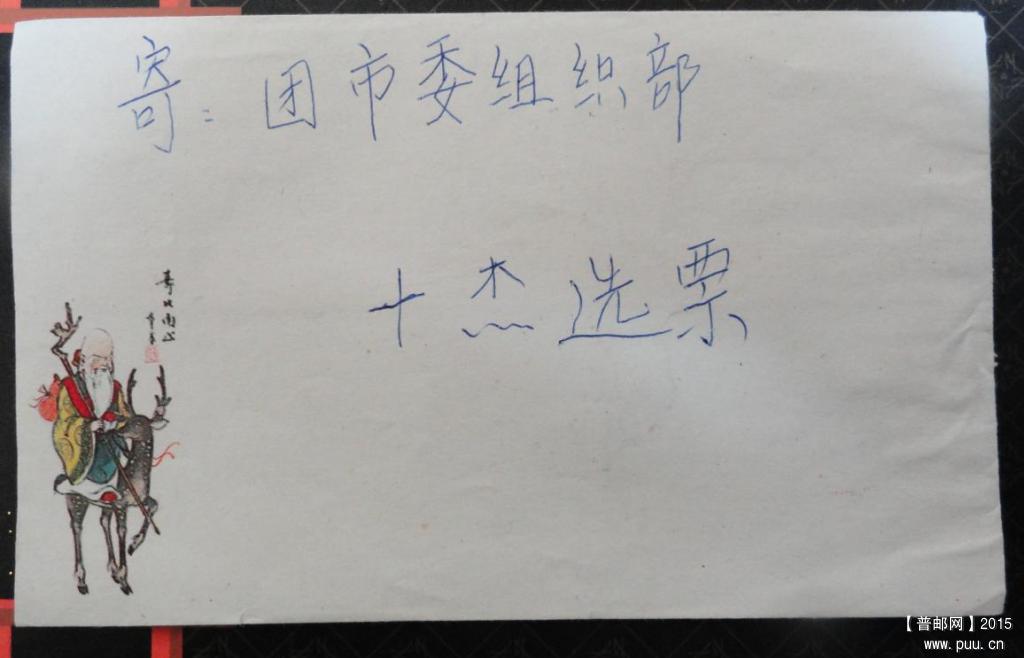 寄：团市委组织部
十杰选票
寿比南山
【普邮网】2015
www.puu.cn